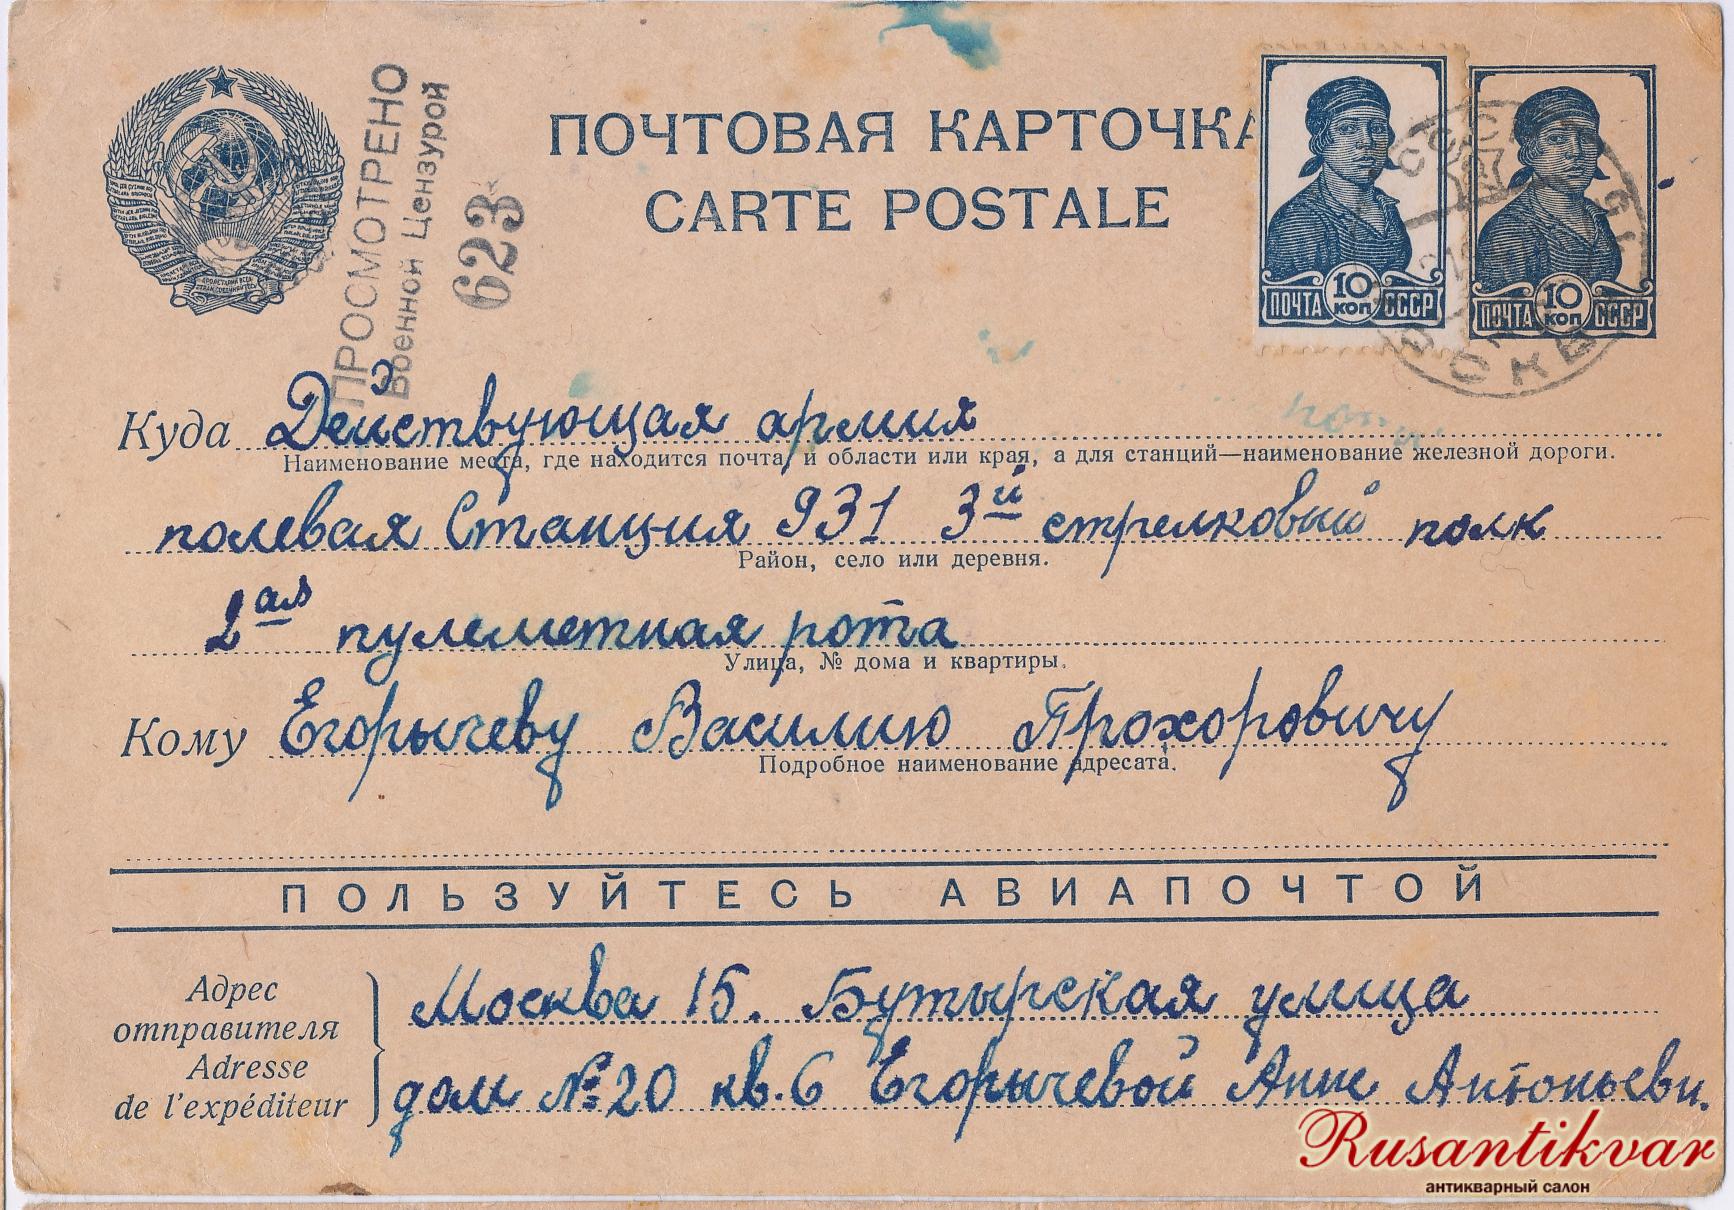 ПОЧТОВАЯ КАРТОЧКА
CARTE POSTALE
ПРОСМОТРЕНО
Военной Цензурой
623
ПОЧТА 10 КОП СССР
ПОЧТА 10 КОП СССР
Куда Действующая армия
Наименование места, где находится почта, и области или края, а для станций—наименование железной дороги.
полевая Станция 931 3й стрелковый полк
Район, село или деревня.
2ая пулеметная рота
Улица, № дома и квартиры.
Кому Егорычеву Василию Прохоровичу
Подробное наименование адресата.
ПОЛЬЗУЙТЕСЬ АВИАПОЧТОЙ
Адрес
отправителя
Adresse
de l'expéditeur
Москва 15. Бутырская улица
дом № 20 кв. 6 Егорычевой Анне Антоньевн.
Rusantikvar
антикварный салон